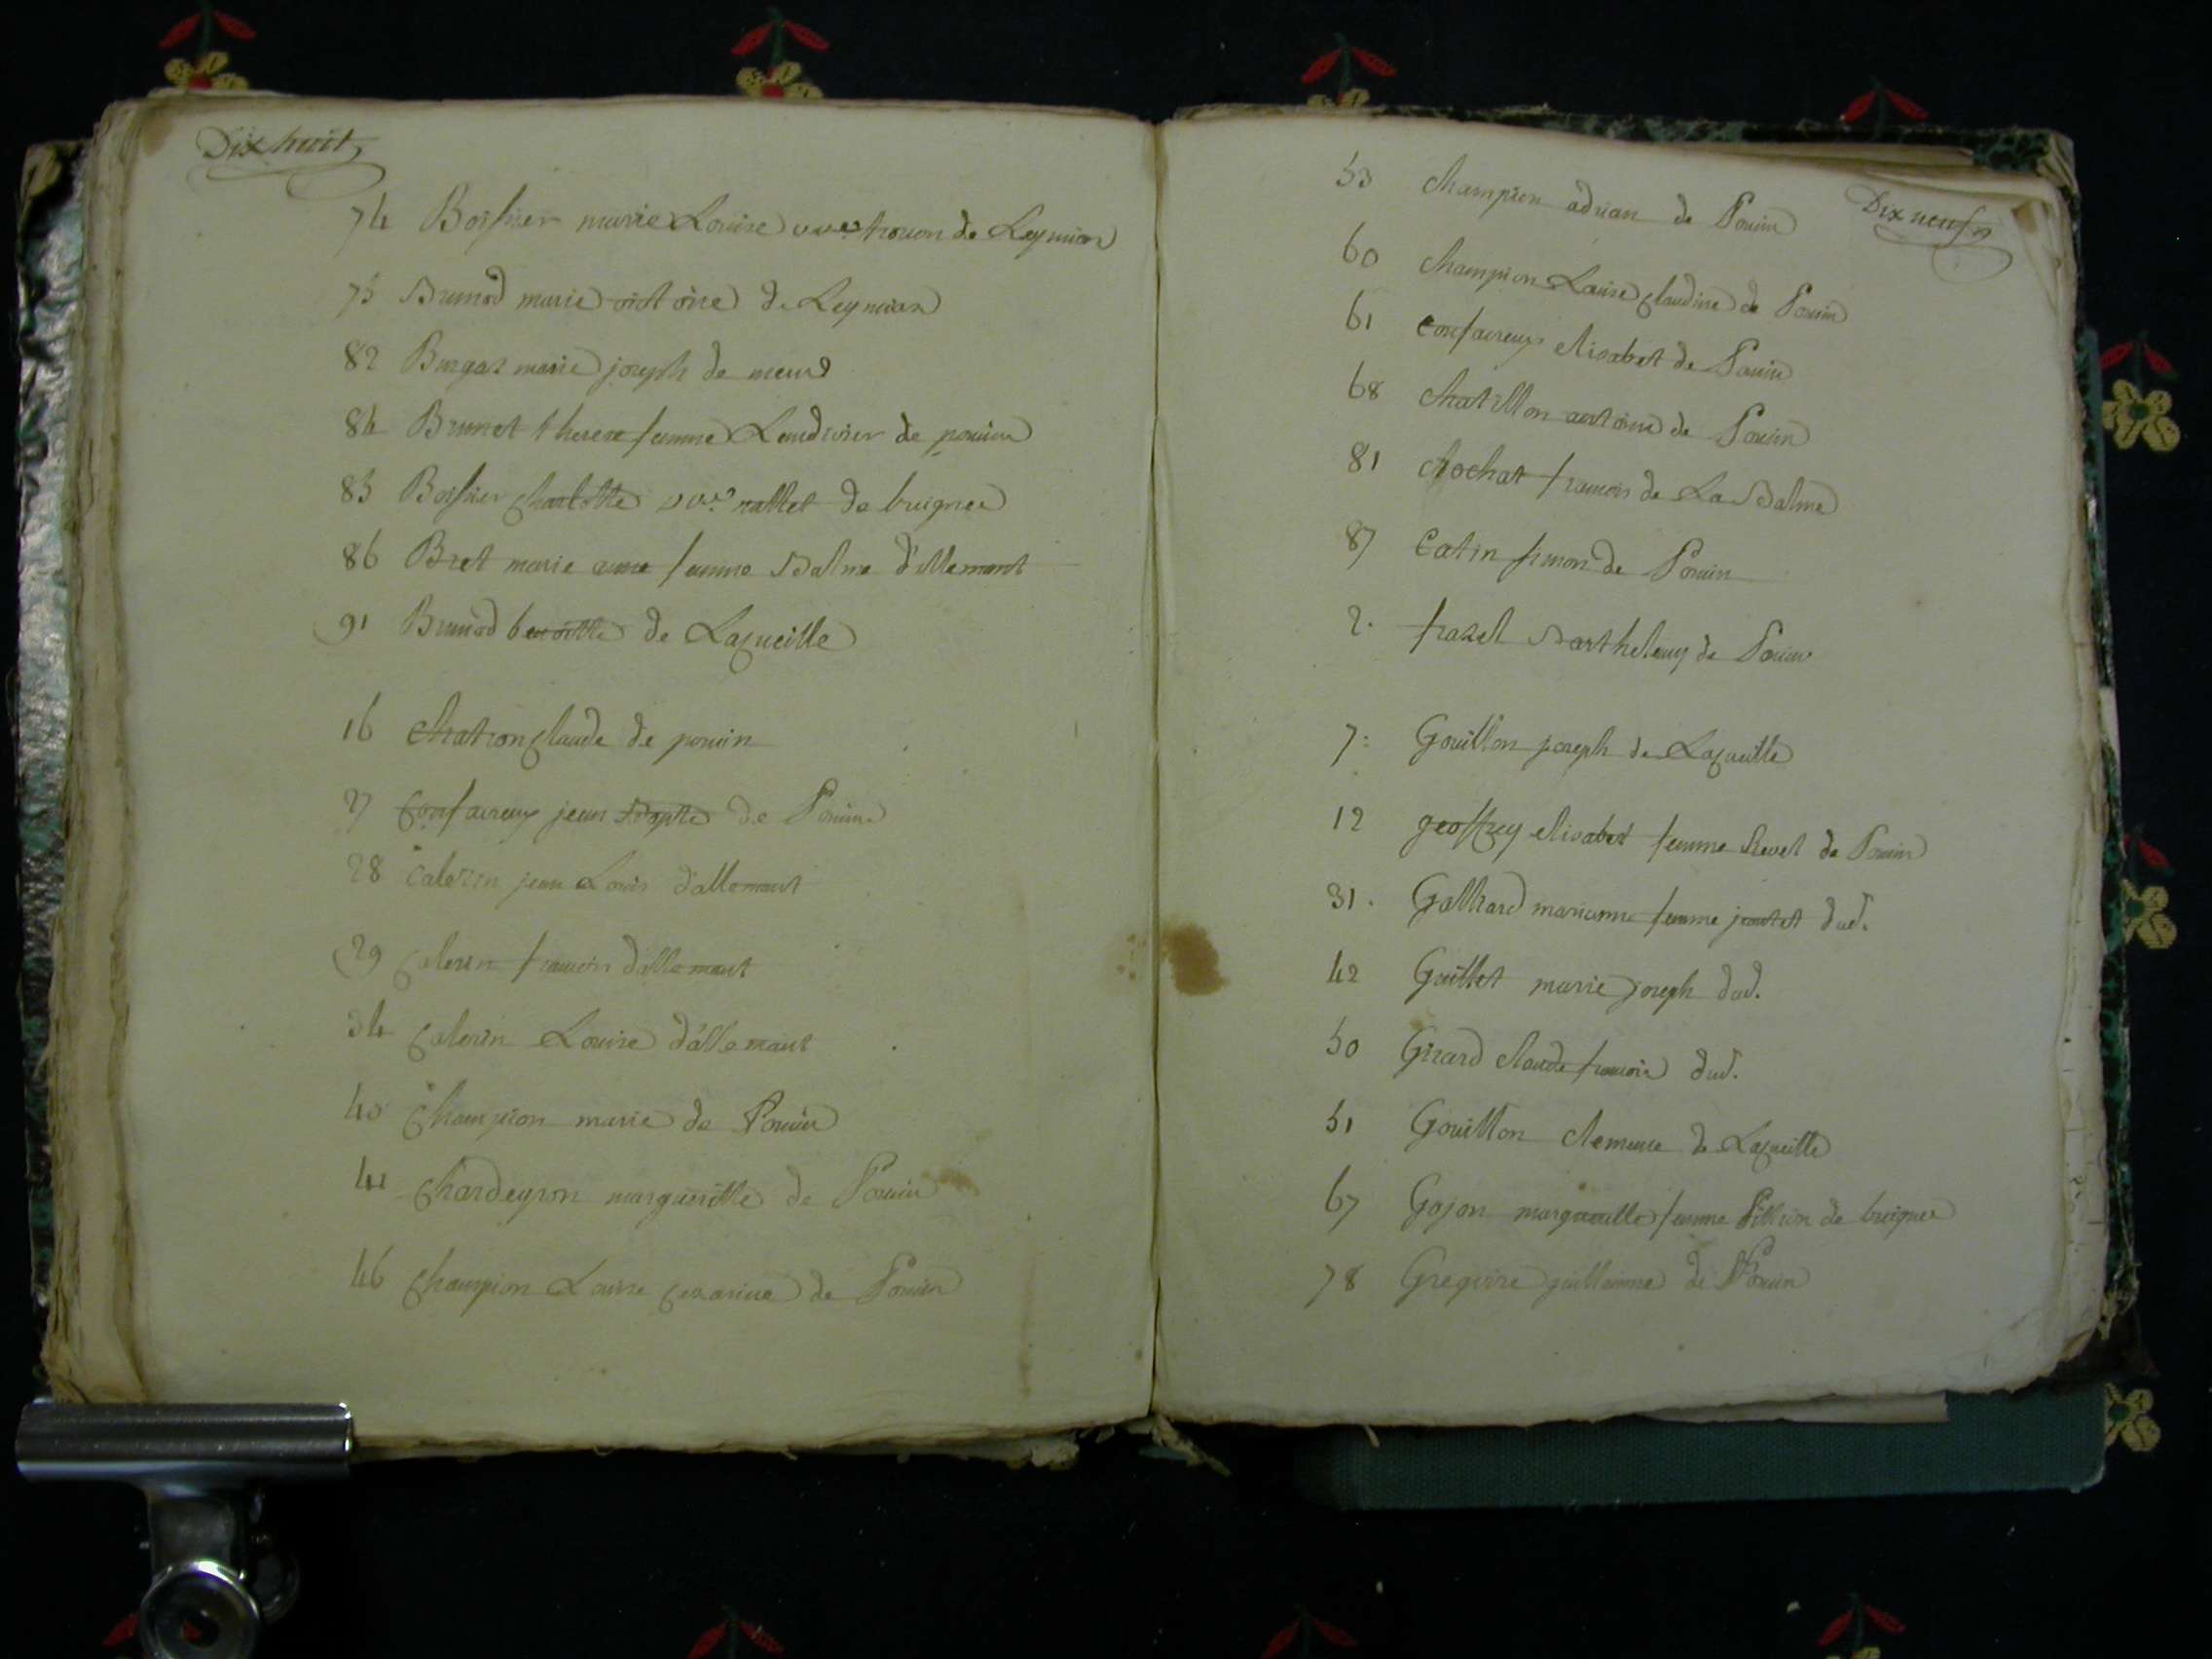 Dixhuit
74 Boissier marie Louise vve trouon de Leymian
75 Brunod marie victoire de Leymian
82 Burgas marie joseph de
84 Brunet therese femme Laudrivier de poncin
85 Boissier charlotte vve nallet de breignes
86 Bret marie anne femme Balme d'allemant
91 Brunod benoitte de Lacueille
16 Chatron claude de poncin
27 Confavreux jean Bapte de Poncin
28 Calerin jean Louis d'allemant
29 Calerin francois d'allemant
34 Calerin Louise d'allemant
40 Champion marie de Poncin
41 Chardeyron margueritte de Poncin
46 Champion Louise cezarine de Poncin
Dix neuf
53 Champion adrian de Poncin
60 Champion Louise claudine de Poncin
61 Confavreux elisabet de Poncin
68 Chatillon antoine de Poncin
81 Chochat francois de La Balme
87 Catin simon de Poncin
2. frazel Barthelemy de Poncin
7: Gouillon joseph de Lacueille
12 geoffrey elisabet femme Revel de Poncin
31. Galliard marianne femme jantet dud.
42 Guillet marie joseph dud.
50 Girard claude francois dud.
51 Gouillon clemence de Lacueille
67 Gojon margueritte femme Pittion de breignes
78 Gregoire guillaume de Poncin